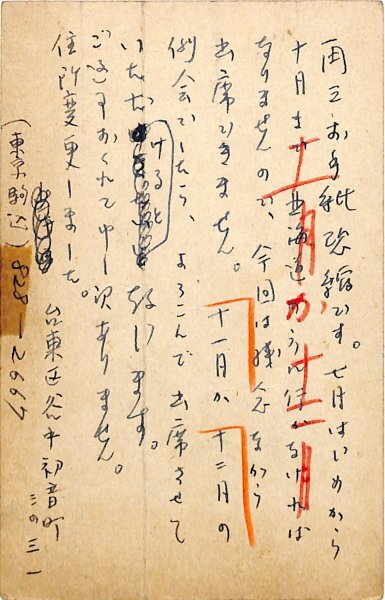 再三お手紙恐縮です。七月はじめから
十月まで北海道 行かなければ
なりませんので、今回は残念ながら
出席できません。十一月か十二月の
例会でしたら、よろこんで出席させて
いただけると います。
ご返事おくれて申し訳ありません。
住所変更しました。台東区谷中初音町
三の三一
(東京駒込)828-2667
十一月か十二月